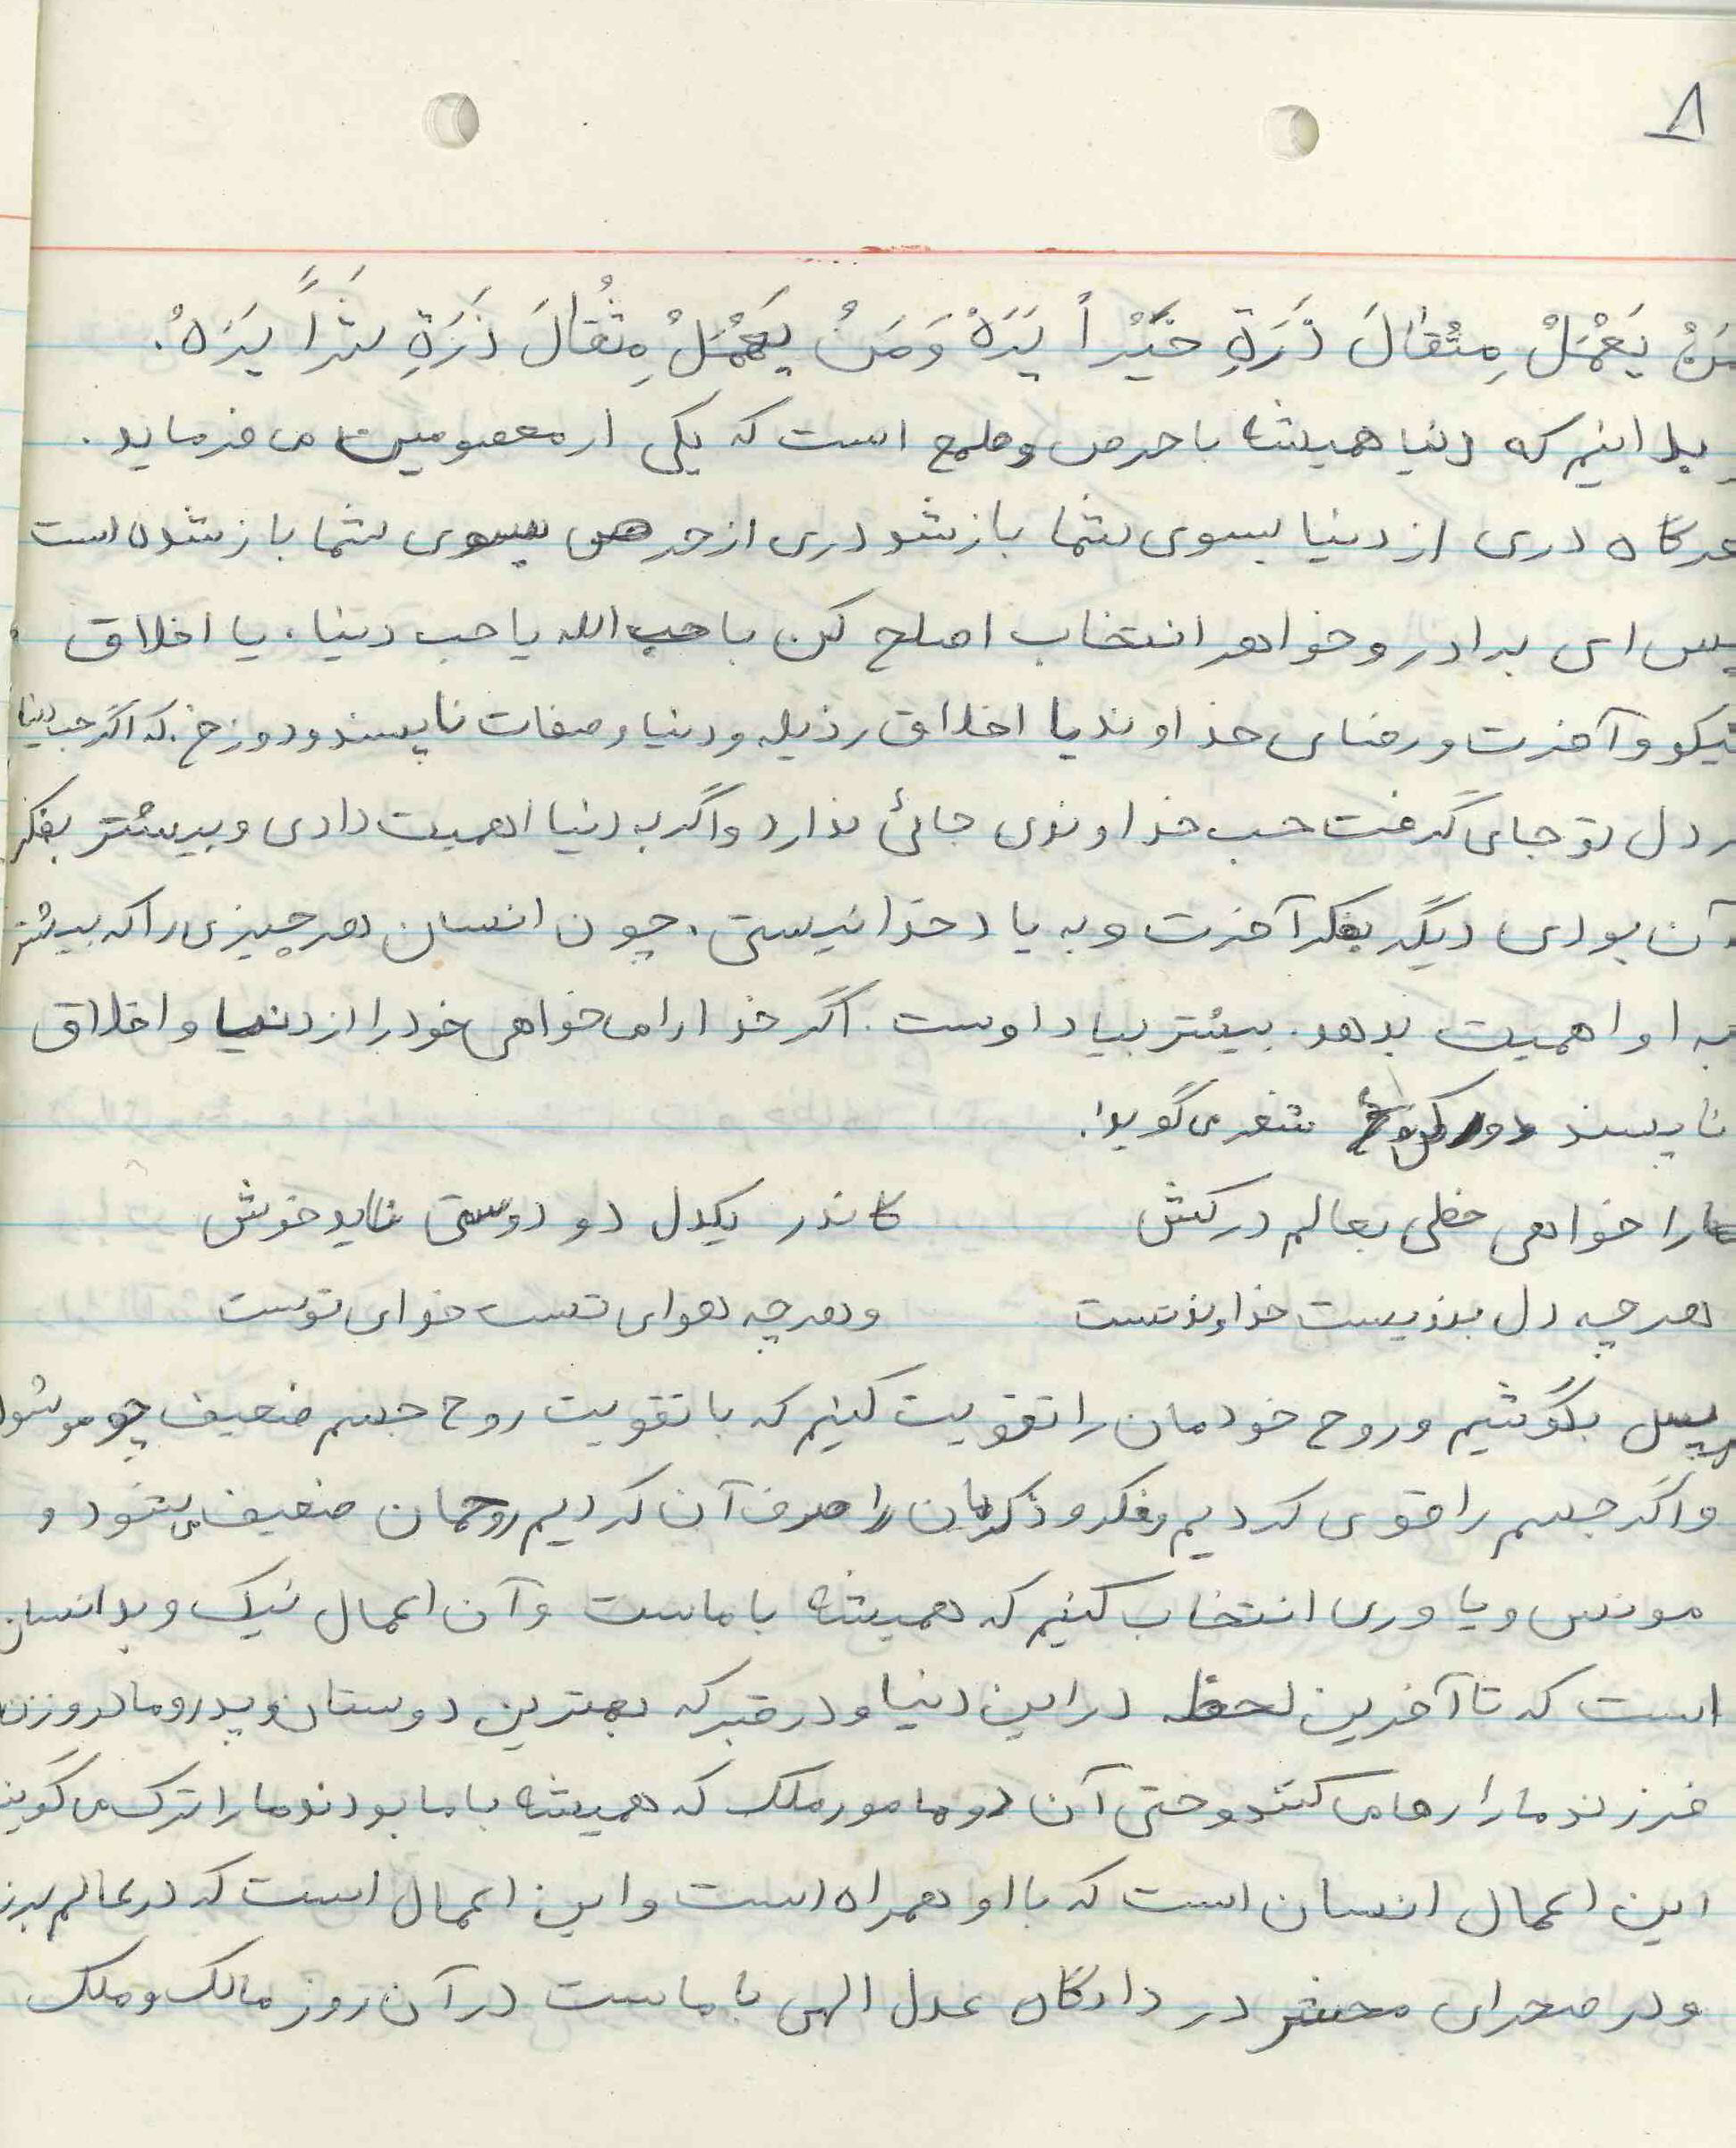 ۸
مَنْ یَعْمَلْ مِثْقٰالَ ذَرَةٍ خَیْراً یَرَهْ وَمَنْ یَعْمَلْ مِثْقٰالَ ذَرَةٍ شَراً یَرَهْ.
بدانیم که دنیا همیشه با حرص و طمع است که یکی از معصومین می فرماید.
هرگاه دری از دنیا بسوی شما باز شد دری از حرص بسوی شما باز شده است
پس ای برادر و خواهر انتخاب اصلح کن یا حب الله یا حب دنیا. یا اخلاق
نیکو و آخرت و رضای خداوند یا اخلاق رذیله و دنیا و صفات ناپسند و دوزخ. که اگر حب دنیا
در دل تو جای گرفت حب خداوندی جائی ندارد و اگر به دنیا اهمیت دادی و بیشتر بفکر
آن بودی دیگر بفکر آخرت و به یاد خدا نیستی. چون انسان هر چیزی را که بیشتر
به او اهمیت بدهد. بیشتر بیاد اوست. اگر خدا را می خواهی خود را از دنیا و اخلاق
ناپسند دور کن شعر می گوید:
ما را خواهی خطی بعالم درکش کاندر یکدل دو دوستی ناید خوش
هر چه دل بندیست خداوند تست و هر چه هوای تست خدای توست
پس بکوشیم و روح خودمان را تقویت کنیم که با تقویت روح جسم ضعیف می شود
و اگر جسم را قوی کردیم و فکر و ذکرمان را صرف آن کردیم روحمان ضعیف میشود و
مونس و یاوری انتخاب کنیم که همیشه با ماست و آن اعمال نیک و بد انسان
است که تا آخرین لحظه در این دنیا و در قبر که بهترین دوستان و پدر و مادر و زن
فرزند ما را رها می کنند و حتی آن دو مامور ملک که همیشه با ما بودند ما را ترک می گویند
این اعمال انسان است که با او همراه است و این اعمال است که در عالم برزخ
و در صحرای محشر در دادگاه عدل الهی با ماست در آن روز مالک و ملک